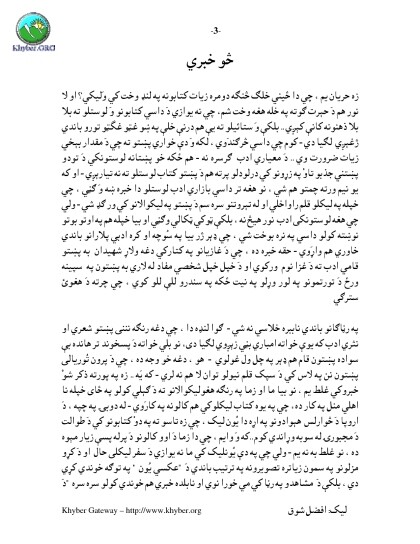 -3-
Khyber.ORG
څو خبري
زه حريان يم ، چي دا ځيني خلګ څنګه دومره زيات کتابونه په لنډ وخت کي وليکي؟ او لا
نور هم دَ حيرت ګوته په خله هغه وخت شم، چي نه يوازي دَ داسي کتابونو وَ لوستلو ته بلا
بلا ذهنونه کاني کيږي.. بلکي وَ ستائيلو ته يې هم درني خلې په ښو غټو غټو تورو باندي
ژغيږي لګيا دي - کوم چي داسي څرګندوي ، لکه وَ دې خواري پښتو ته چي دَ مقدار ببخي
زيات ضرورت وي .. دَ معياري ادب ګرسره نه - هم ځکه خو پښتانه لوستونکي دَ نودو
پښتني جذبو تاوْ په زړونو کي درلودلو پرته هم دَ پښتو کتاب لوستلو ته نه تياريږي - او که
يو نيم ورته چمتو هم شي ، نو هغه تر داسي بازاري ادب لوستلو دا خبره ښه وَ ګڼي ، چي
خپله په ليکلو قلم را واخلي او له نيروتنو سره سم دَ پښتو په ليکوالانو کي ورګډ شي - ولي
چي هغه لوستونکی ادب نور هيڅ نه ، بلکي ټوکي ټکالي وګڼي او بيا خپله هم په اوتو بوتو
نوښته کولو داسي په نره بوخت شي ، چي ډېر ژر بيا په سُوچه او کره ادبي پلارانو باندي
خاوري هم واړوي - حقه خبره ده ، چي دَ غازيانو په کتار کي دغه ولاړ شهيدان به پښتو
قامي ادب ته دَ غزا نوم ورکوي او دَ خپل خپل شخصي مفاد له لاري به پښتون په سپينه
ورځ دَ تورتمونو په لور وړلو په نيت څکه په سندرو للي للو کوي ، چي چرته دَ هغوئ
سترګي
په رڼاګانو باندي ناببره خلاسي نه شي - ګوا لنډه دا ، چي دغه رنګه نننی پښتو شعري او
نثري ادب که يوې خواته امباري بڼي زېږوي لګيا دی، نو بلي خواته دَ پسخوند تر هانده بې
سواده پښتون قام هم ډېر په چل ول غولوي - هو ، دغه خو وجه ده ، چي دَ پرون ثوربالی
پښتون نن په لاس کي دَ سپک قلم نيولو توان لا هم نه لري - که يَه .. زه په پورته ذکر شوْ
خبرو کي غلط يم ، نو بيا ما او زما په رنګه هغو ليکوالانو ته دَ ګېلي کولو په ځاى خپله نا
اهلي منل په کار ده ، چي په يوه کتاب ليکلو کي هم کالونه په کاروَي - له دوبۍ په چپه ، دَ
اروپا دَ څوارلس هېوادونو په اړه دا يُون ليک ، چي زه تاسو ته په دوْ کتابونو کي دَ طوالت
دَ مجبورۍ له سوبه وړاندي کوم .که وَ وايم ، چي دا زما دَ اوو کالونو دَ پرله پسې زيار مېوه
ده ، نو غلط به نه يم - ولي چي په دې يُونليک کي ما نه يوازي دَ سفر ليکلی حال او دَ کړو
مزلونو په سمون زياتره تصويرونه په ترتيب باندي دَ "عکسي يُون " په توګه خوندي کړي
دي ، بلکي دَ مشاهدو په رڼا کي مي خورا نوي او نابلده خبري هم خوندي کولو سره سره "دَ
Khyber Gateway – http://www.khyber.org
ليک: افضل شوق